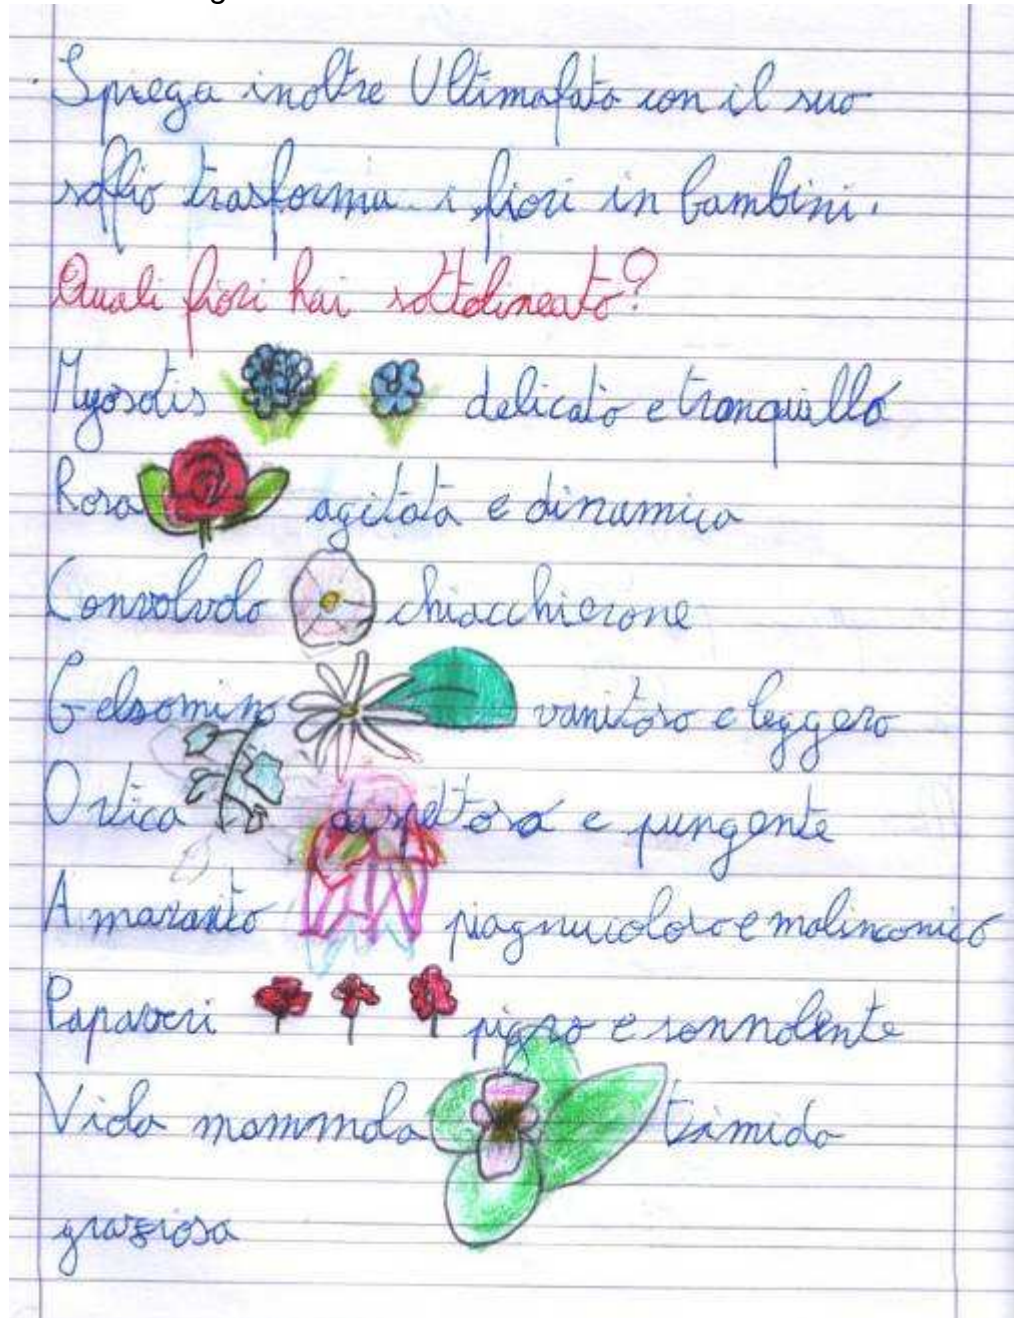 Spiega inoltre Ultimafata con il suo
soffio trasforma i fiori in bambini.
Quali fiori hai sottolineato?
Myosotis delicato e tranquillo
Rosa agitata e dinamica
Convolvolo chiacchierone
Gelsomino vanitoso e leggero
Ortica dispettosa e pungente
Amaranto piagnucoloso e malinconico
Papaveri pigro e sonnolente
Viola mammola timida
graziosa